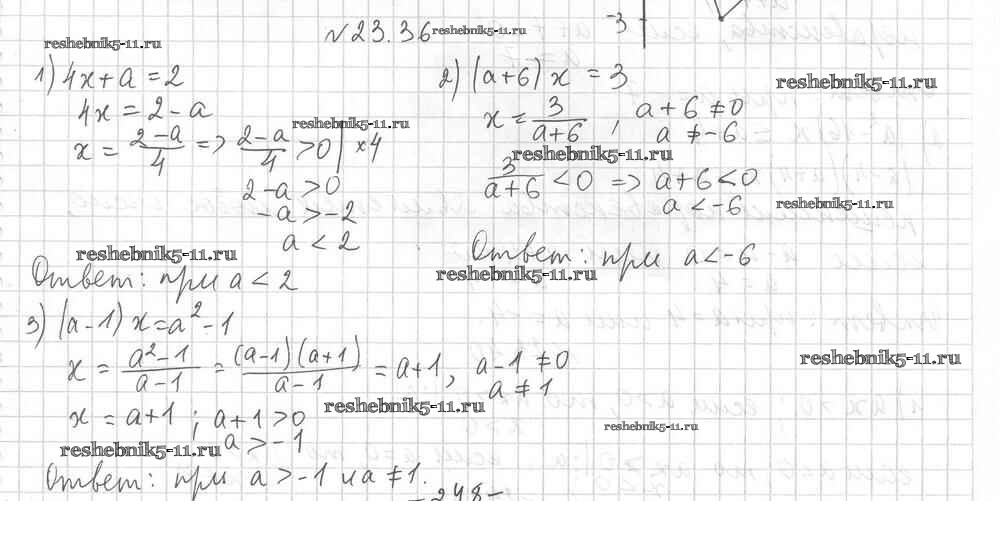 №23.36
-3
reshebnik5-11.ru
reshebnik5-11.ru
1) 4x+a=2
4x=2-a
x = (2-a)/4 => (2-a)/4 > 0 | ×4
reshebnik5-11.ru
2-a>0
-a>-2
a<2
reshebnik5-11.ru
Ответ: при a<2
2) (a+6)x = 3
reshebnik5-11.ru
x = 3/(a+6), a+6≠0
a≠-6
reshebnik5-11.ru
3/(a+6) < 0 => a+6<0
a<-6
reshebnik5-11.ru
Ответ: при a<-6
reshebnik5-11.ru
3) (a-1)x=a²-1
x = (a²-1)/(a-1) = (a-1)(a+1)/(a-1) = a+1, a-1≠0
a≠1
reshebnik5-11.ru
reshebnik5-11.ru
x = a+1; a+1>0
a>-1
reshebnik5-11.ru
reshebnik5-11.ru
Ответ: при a>-1 и a≠1.